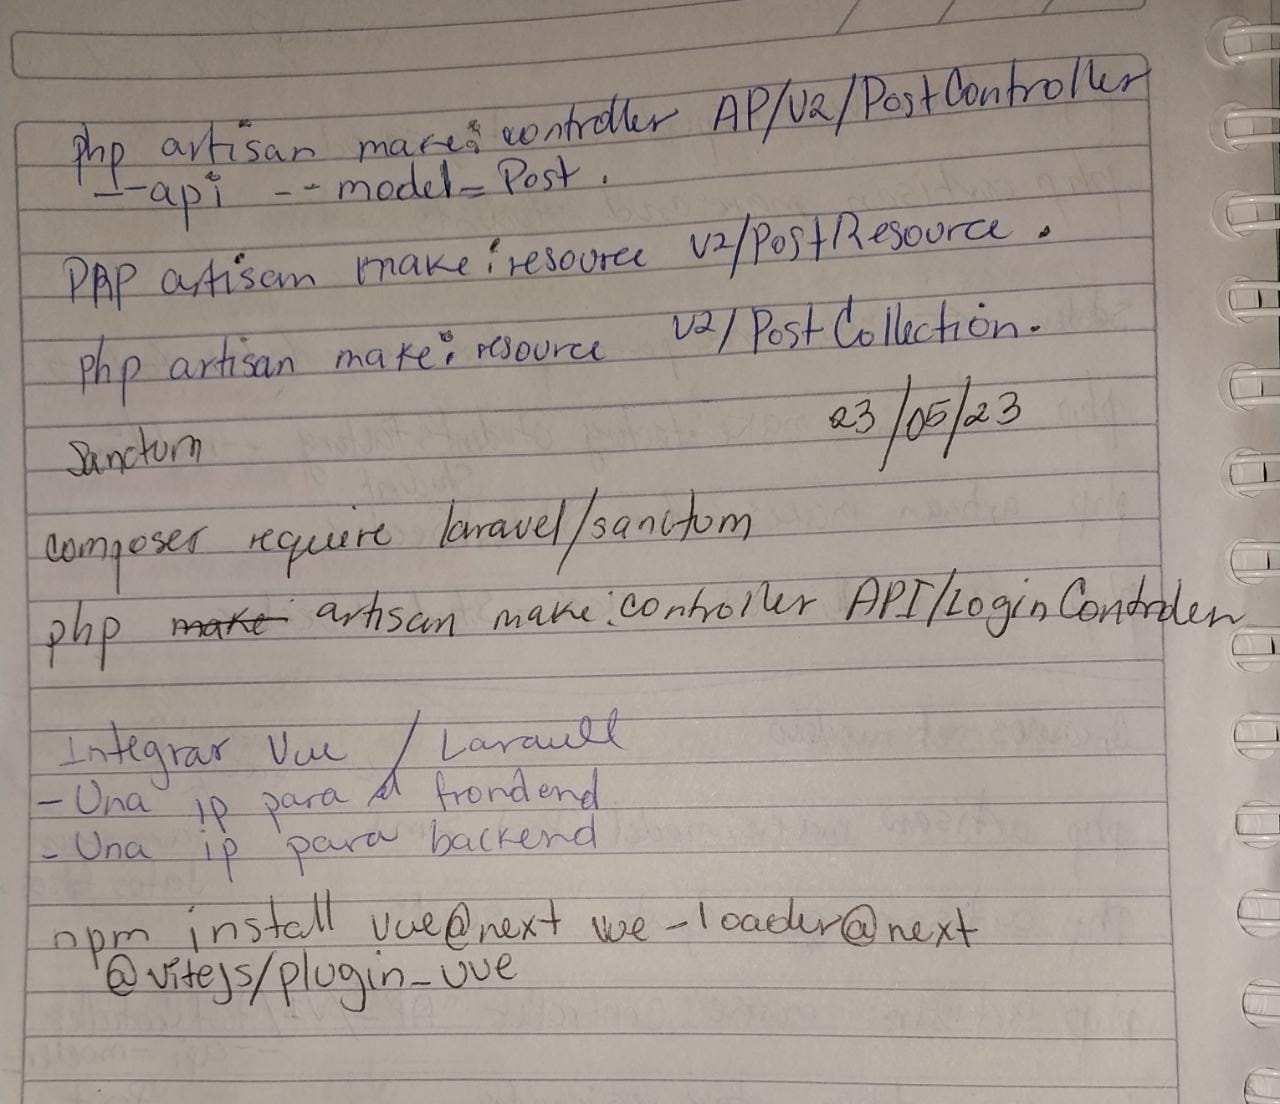 php artisan make: controller AP/V2/PostController
--api --model=Post.
PHP artisan make: resource V2/PostResource.
php artisan make: resource V2/PostCollection.
23/05/23
Sanctum
composer require laravel/sanctum
php make artisan make: controller API/LoginController
Integrar Vue / Laravell
- Una ip para el frondend
- Una ip para backend
npm install vue@next vue-loader@next
@vitejs/plugin_vue